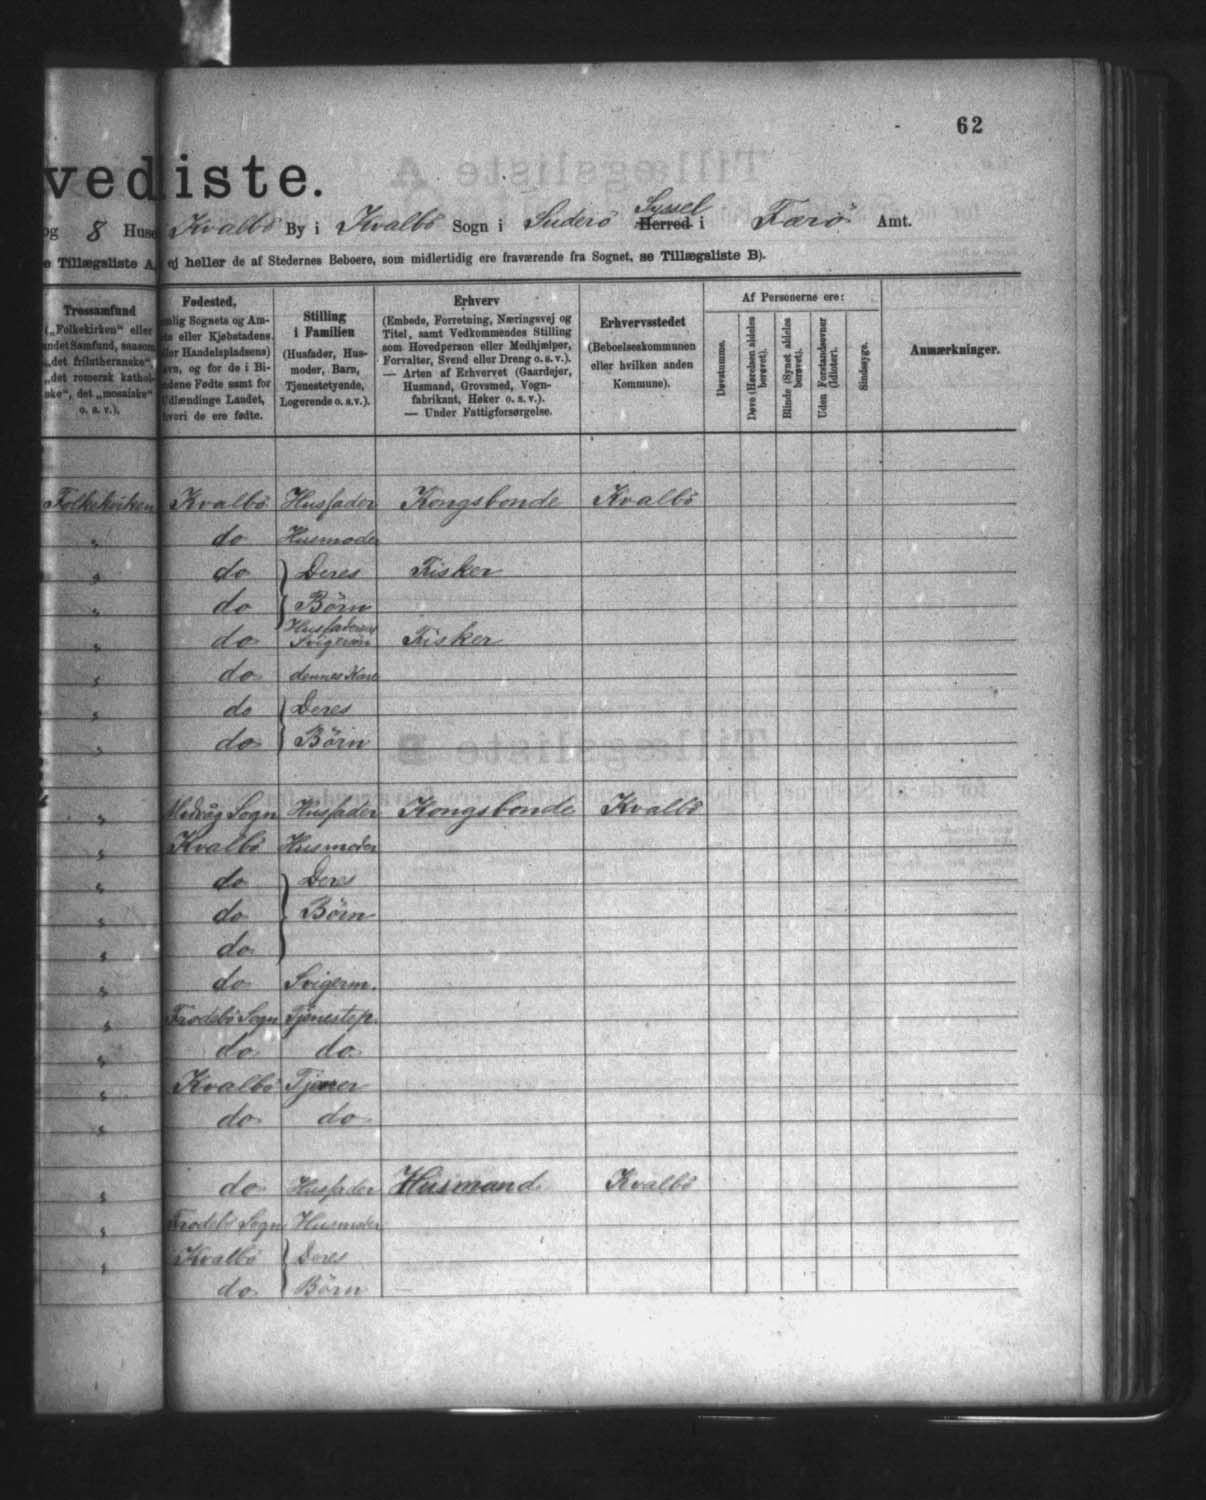 62
vediste.
og 8 Huse Kvalbö By i Kvalbö Sogn i Suderö Syssel Herred i Færö Amt.
e Tillægsliste A, ej heller de af Stedernes Beboere, som midlertidig ere fraværende fra Sognet, se Tillægsliste B).
Trossamfund
(„Folkekirken“ eller
andet Samfund, saasom
„det frilutheranske“,
„det romersk kathol-
ske“, det „mosaiske“
o. s. v.).
Fødested,
nlig Sognets og Am-
ts eller Kjøbstadens
ller Handelspladsens)
avn, og for de i Bi-
dene Fødte samt for
Udlændinge Landet,
hvori de ere fødte.
Stilling
i Familien
(Husfader, Hus-
moder, Barn,
Tjenestetyende,
Logerende o. s. v.).
Erhverv
(Embede, Forretning, Næringsvej og
Titel, samt Vedkommendes Stilling
som Hovedperson eller Medhjælper,
Forvalter, Svend eller Dreng o. s. v.).
— Arten af Erhvervet (Gaardejer,
Husmand, Grovsmed, Vogn-
fabrikant, Høker o. s. v.).
— Under Fattigforsørgelse.
Erhvervsstedet
(Beboelseskommunen
eller hvilken anden
Kommune).
Af Personerne ere:
Døvstumme.
Døve (Hørelsen aldeles
berøvet).
Blinde (Synet aldeles
berøvet).
Uden Forstandsevner
(Idioter).
Sindssyge.
Anmærkninger.
Folkekirken Kvalbö Husfader Kongsbonde Kvalbö
" do Husmoder
" do Deres Fisker
" do Börn
" do Husfaderens Svigerm Fisker
" do dennes Kone
" do Deres
" do Börn
" Midvåg Sogn Husfader Kongsbonde Kvalbö
" Kvalbö Husmoder
" do Deres
" do Börn
" do
" do Svigerm.
" Frodebö Sogn Tjenestep.
" do do
" Kvalbö Tjener
" do do
" do Husfader Husmand Kvalbö
" Frodebö Sogn Husmoder
" Kvalbö Deres
do Börn —